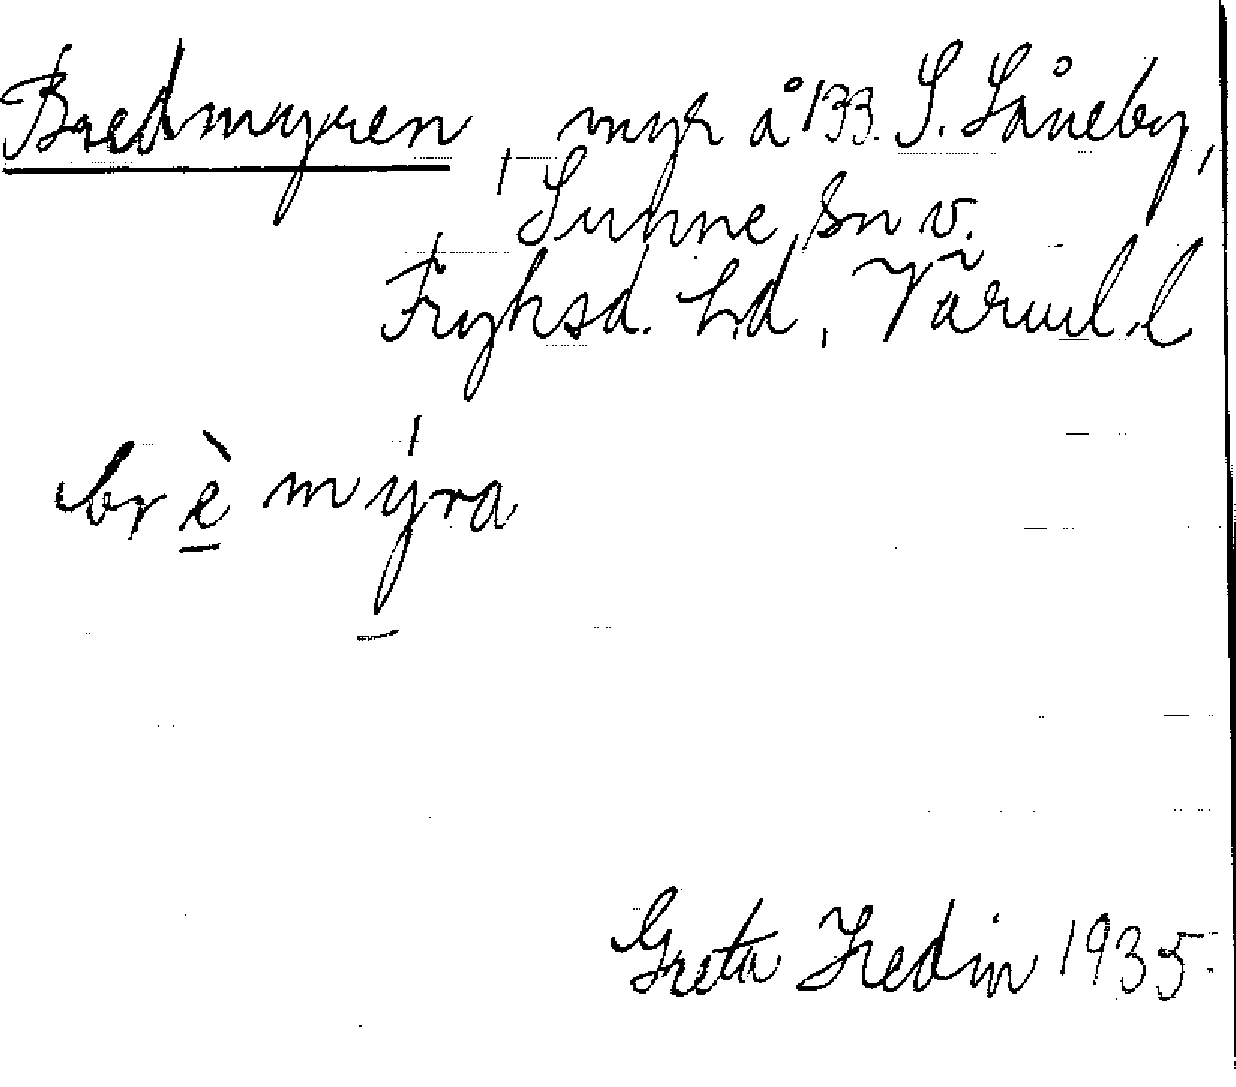 Bredmyren myr å 133. S. Låneby,
Sunne sn v.
Fryksd. hd, Värml. l
brè mýra
Greta Hedin 1935.